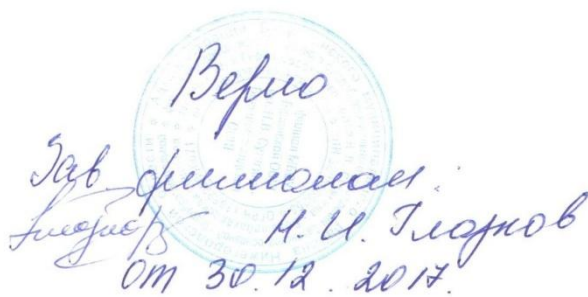 Верно
Зав филиалом
Н. И. Глазков
от 30.12.2017.